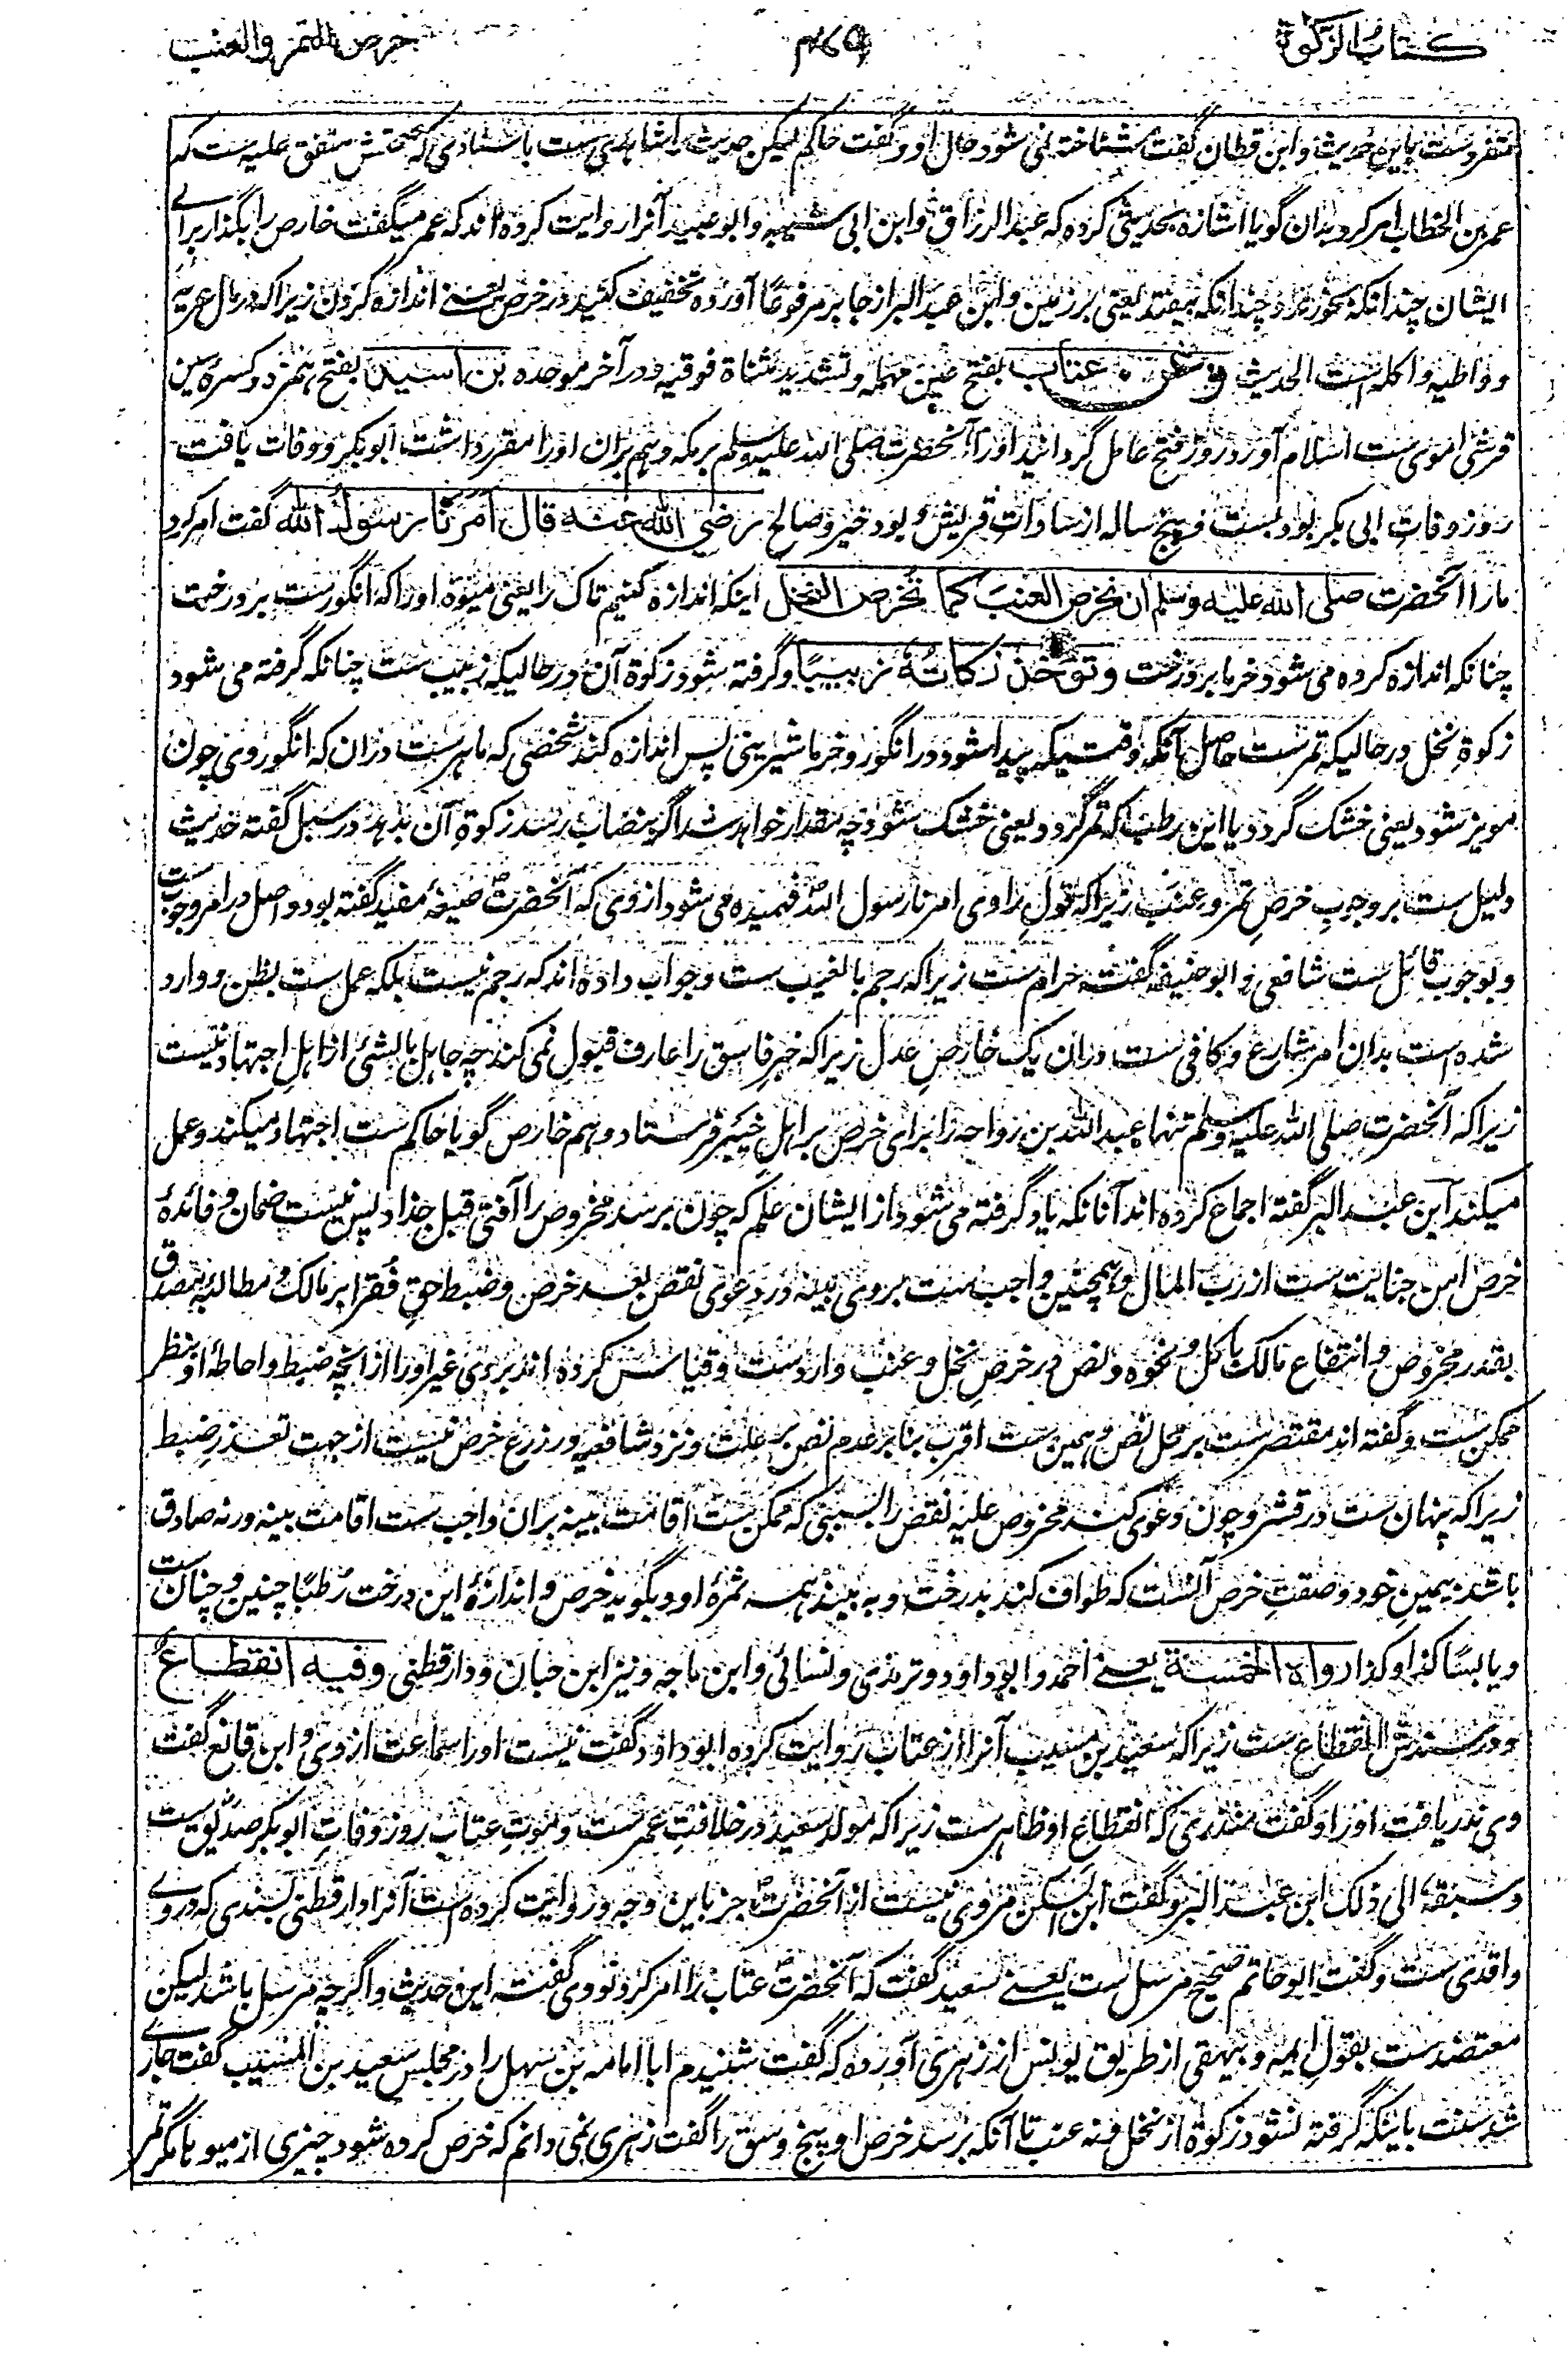 کتاب الزکوة
۴۷۹
خرص التمر والعنب
متفردست باین حدیث وابن قطان گفت شناخته نمی شود حال او وگفت حاکم لیکن حدیث را شاهدی ست باسنادی که صحتش متفق علیه ست که
عمر بن الخطاب امر کرد بدان گویا اشاره بحدیثی کرده که عبدالرزاق وابن ابی شیبه وابو عبید آنرا روایت کرده اند که عمر میگفت خارص را بگذار برای
ایشان چندانکه بخورند و چندانکه بیفتد یعنی بر زمین وابن عبدالبر از جابر مرفوعًا آورده تخفیف کنید در خرص یعنے اندازه کردن زیراکه در مال عریه
و واطیه و اکله ست الحدیث وعن عتاب بفتح عین مهمله وتشدید مثناة فوقیه و در آخر موحده بن اسید بفتح همزه وکسرهٔ سین
قرشی اموی ست اسلام آورد روز فتح عامل گردانید او را آنحضرت صلی الله علیه وسلم بر مکه و هم بران او را مقرر داشت ابوبکر و وفات یافت
روز وفات ابی بکر بود بست و پنج ساله از سادات قریش بود خیر وصالح رضی الله عنه قال امرنا رسول الله گفت امر کرد
مارا آنحضرت صلی الله علیه وسلم ان نخرص العنب کما نخرص النخل اینکه اندازه کنیم تاک را یعنی میوهٔ او را که انگورست بر درخت
چنانکه اندازه کرده می شود خرما بر درخت وتؤخذ زکاته زبیبًا وگرفته شود زکوة آن در حالیکه زبیب ست چنانکه گرفته می شود
زکوة نخل در حالیکه تمرست حاصل آنکه وقتیکه پیدا شود در انگور وخرما شیرینی پس اندازه کند شخصی که ماهرست دران که انگور وی چون
مویز شود یعنی خشک گردد یا این رطب که تمر گردد یعنی خشک شود چه مقدار خواهد شد اگر بنصاب رسد زکوة آن بدهد در سبل گفته حدیث
دلیل ست بر وجوب خرص تمر و عنب زیراکه قول راوی امرنا رسول الله فهمیده می شود از وی که آنحضرت صیغهٔ مفید گفته بود واصل در امر وجوب ست
و بوجوب قائل ست شافعی و ابو حنیفه گفته حرام ست زیراکه رجم بالغیب ست وجواب داده اند که رجم نیست بلکه عمل ست بظن و وارد
شده ست بدان امر شارع وکافی ست دران یک خارص عدل زیراکه خبر فاسق را عارف قبول نمی کند چه جاهل بالشئ از اهل اجتهاد نیست
زیراکه آنحضرت صلی الله علیه وسلم تنها عبد الله بن رواحه را برای خرص بر اهل خیبر فرستاد و هم خارص گویا حاکم ست اجتهاد میکند وعمل
میکند ابن عبد البر گفته اجماع کرده اند آنانکه یاد گرفته می شود از ایشان علم که چون برسد مخروص را آفتی قبل جذاذ پس نیست ضمان و فائدهٔ
خرص امن جنایت ست از رب المال وهمچنین واجب ست بروی بینه در دعوی نقص بعد خرص و ضبط حق فقرا بر مالک و مطالبهٔ مصدق
بقدر مخروص و انتفاع مالک باکل و نحوه و نص در خرص نخل و عنب واردست وقیاس کرده اند بروی غیر او را از آنچه ضبط و احاطهٔ او بنظر
ممکن ست وگفته اند مقتصرست بر محل نص و همین ست اقرب بنا بر عدم نص بر علت و نزد شافعیه در زرع خرص نیست از جهت تعذر ضبط
زیراکه پنهان ست در قشر و چون دعوی کند مخروص علیه نقص را بسببی که ممکن ست اقامت بینه بران واجب ست اقامت بینه ورنه صادق
باشد بیمین خود و صفت خرص آنست که طواف کند بدرخت و به بیند همه ثمرهٔ او و بگوید خرص و اندازهٔ این درخت رطبًا چنین و چنان ست
و یابسًا کذا و کذا رواه الخمسة یعنے احمد وابو داود و ترمذی و نسائی وابن ماجه ونیز ابن حبان و دار قطنی وفیه انقطاع
و در سندش انقطاع ست زیراکه سعید بن مسیب آنرا از عتاب روایت کرده ابو داود گفت نیست او را سماعت از وی و ابن قانع گفت
وی ندریافت او را وگفت منذری که انقطاع او ظاهرست زیراکه مولد سعید در خلافت عمرست وموت عتاب روز وفات ابوبکر صدیق ست
وسبقه الی ذلک ابن عبد البر وگفت ابن السکن مروی نیست از آنحضرت جز باین وجه و روایت کرده ست آنرا دار قطنی بسندی که دروے
واقدی ست وگفت ابو حاتم صحیح مرسل ست یعنے سعید گفت که آنحضرت عتاب را امر کرد نووی گفته این حدیث واگرچه مرسل باشد لیکن
معتضدست بقول ایمه و بیهقی از طریق یونس از زهری آورده که گفت شنیدم ابا امامه بن سهل را در مجلس سعید بن المسیب گفت جاری
شد سنت باینکه گرفته نشود زکوة از نخل و نه عنب تا آنکه برسد خرص او پنج وسق را گفت زهری نمی دانم که خرص کرده شود چیزی از میوها مگر تمر